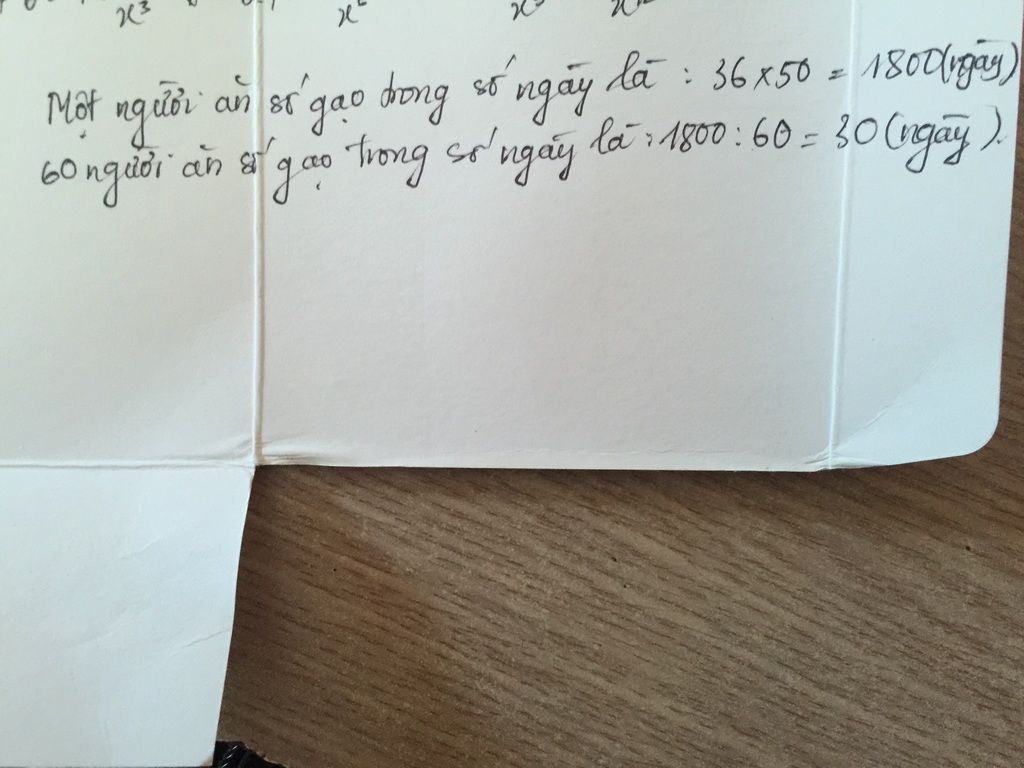 x³ x² x³
Một người ăn số gạo trong số ngày là : 36 x 50 = 1800 (ngày)
60 người ăn số gạo trong số ngày là : 1800 : 60 = 30 (ngày).